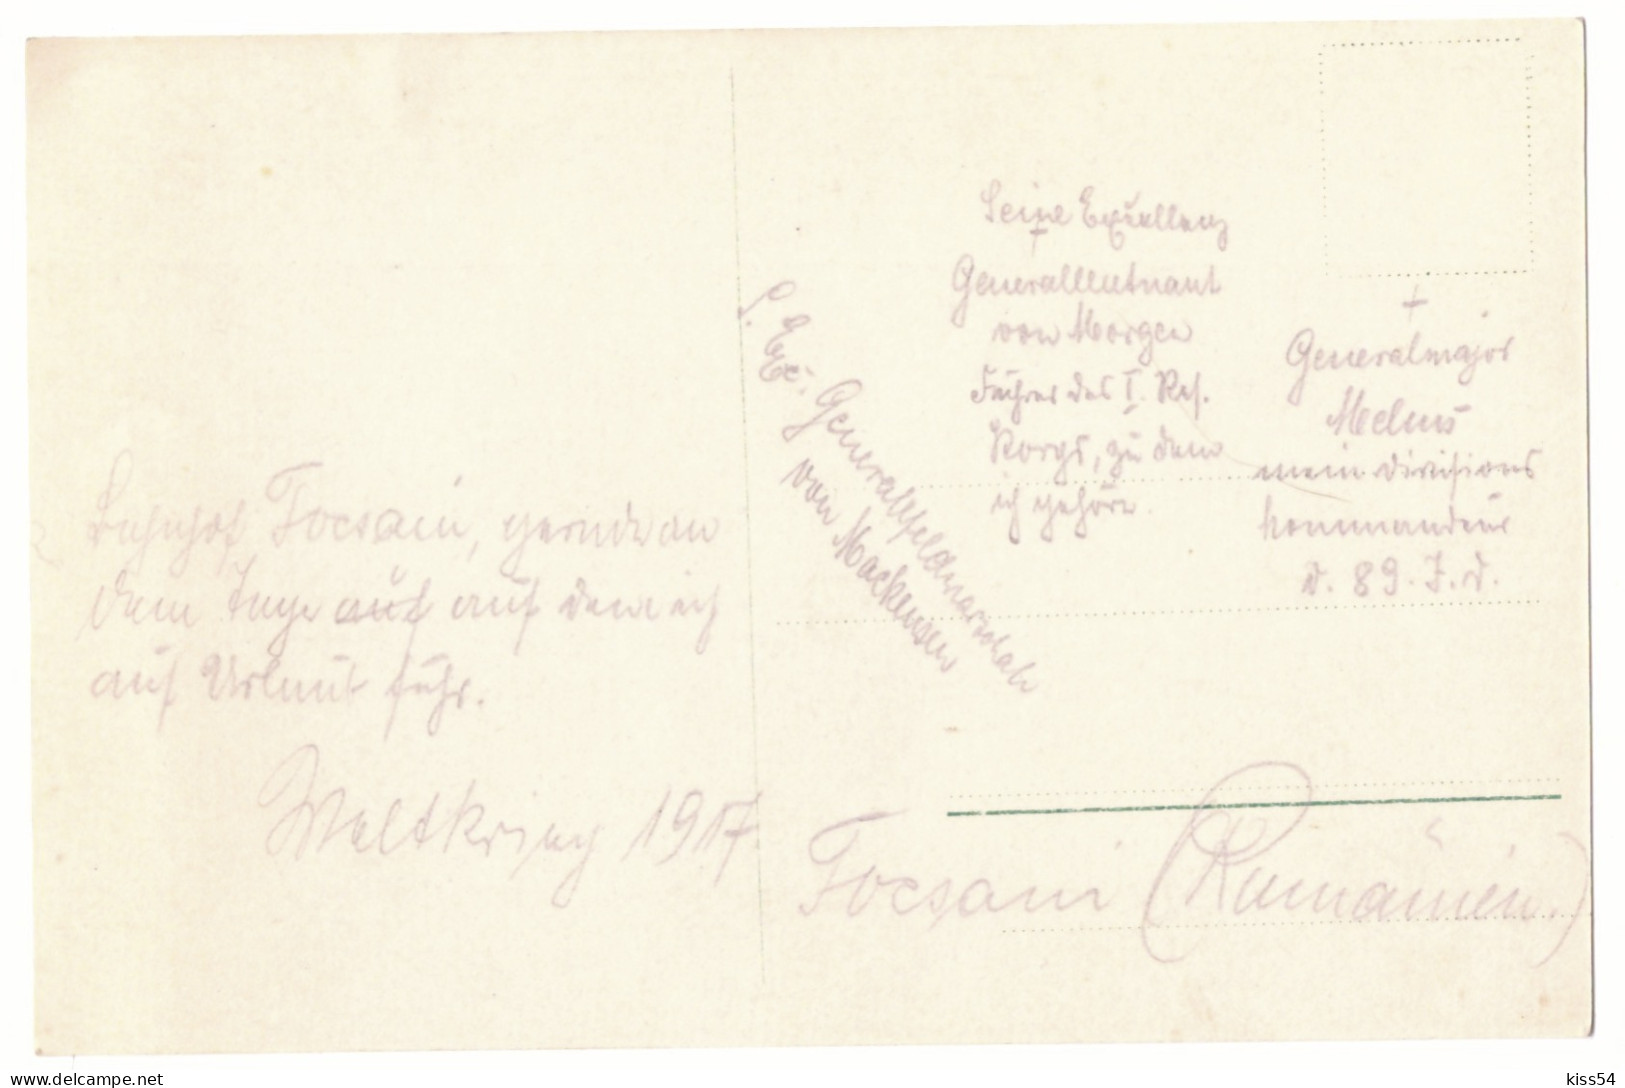 Bahnhof Focsani, gerade an
dem Tage auf auf dem ich
auf Urlaub fuhr.
Weltkrieg 1917.
S. Exz. Generalfeldmarschall
von Mackensen
Seine Exzellenz
Generallleutnant
von Morgen
Führer des I. Res.
Korps, zu dem
ich gehöre.
Generalmajor
mein Divisions
kommandeur
d. 89. I. D.
Focsani (Rumänien.)
delcampe.net
kiss54